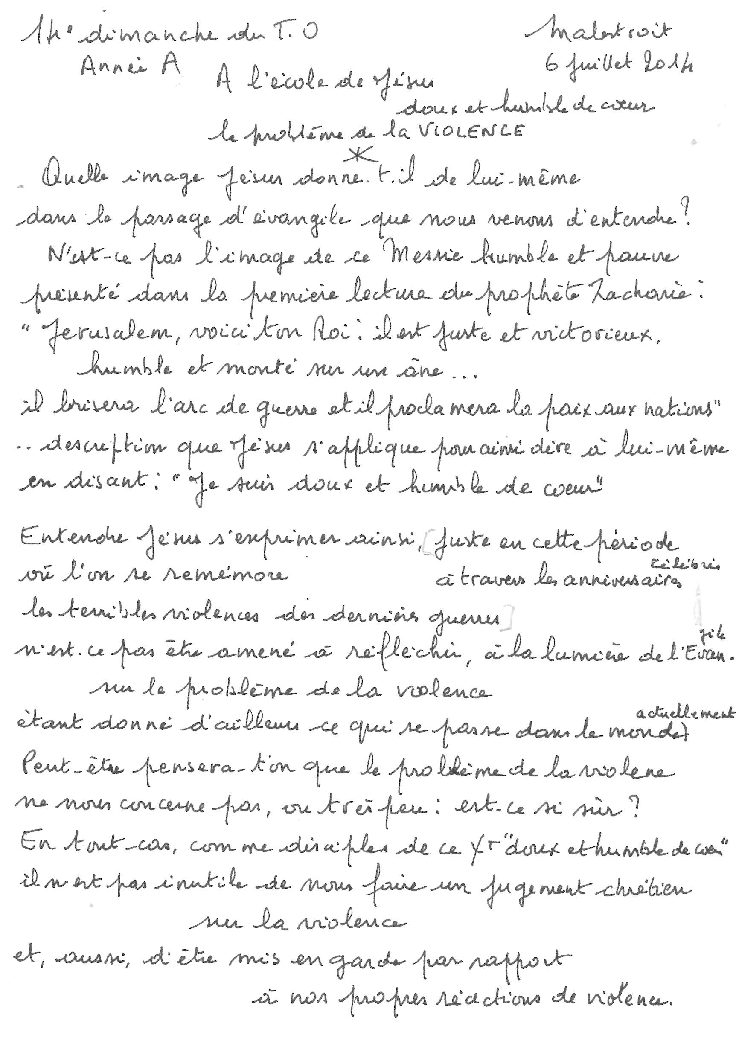 14e dimanche du T.O
Malestroit
Année A
6 Juillet 2014
A l'école de Jésus
doux et humble de cœur
le problème de la VIOLENCE
Quelle image Jésus donne.t.il de lui-même
dans le passage d'évangile que nous venons d'entendre?
N'est-ce pas l'image de ce Messie humble et pauvre
présenté dans la première lecture du prophète Zacharie:
"Jerusalem, voici ton Roi: il est juste et victorieux,
humble et monté sur un âne...
il brisera l'arc de guerre et il proclamera la paix aux nations"
.. description que Jésus s'applique pour ainsi dire à lui-même
en disant: "Je suis doux et humble de coeur"
Entendre Jésus s'exprimer ainsi, [juste en cette période
où l'on se remémore à travers les anniversaires célébrés
les terribles violences des dernières guerres]
n'est.ce pas être amené à réfléchir, à la lumière de l'Evangile
sur le problème de la violence
étant donné d'ailleurs ce qui se passe dans le monde actuellement)
Peut-être pensera-t'on que le problème de la violene
ne nous concerne pas, ou très peu: est-ce si sûr?
En tout-cas, comme disciples de ce Xt "doux et humble de cœur"
il n'est pas inutile de nous faire un jugement chrétien
sur la violence
et, aussi, d'être mis en garde par rapport
à nos propres réactions de violence.